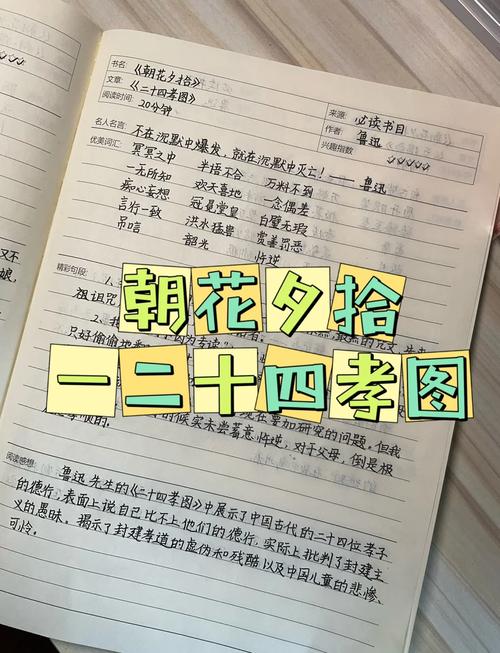 书名:《朝花夕拾》
文章:《二十四孝图》
阅读时间: 20分钟
来源: 必读书目
作者: 鲁迅
兴趣指数 ✓✓✓✓✓
名人名言: 不在沉默中爆发,就在沉默中灭亡!—— 鲁迅
优美词汇: 冥冥之中 半语不合 万料不到
一无所知 欢天喜地 一念偶差
痴心妄想 冠冕堂皇 白璧无瑕
言行一致 洪水猛兽 赏善罚恶
吊唁 韶光 忤逆
精彩句段: 1、
祖诅咒
2、我
只好偷偷地
朝花夕拾
一二十四孝图
在要加研究的问题。但我
的时候实未尝蓄意忤逆,对于父母,倒是极
愿意孝顺的。
阅读感想:
鲁迅先生的《二十四孝图》中展示了中国古代的二十四位孝子
的德行,表面上说自己比不上他们的德行,实际上批判了封建主
义的愚昧。揭示了封建孝道的虚伪和残酷以及中国儿童的悲惨、
可怜。